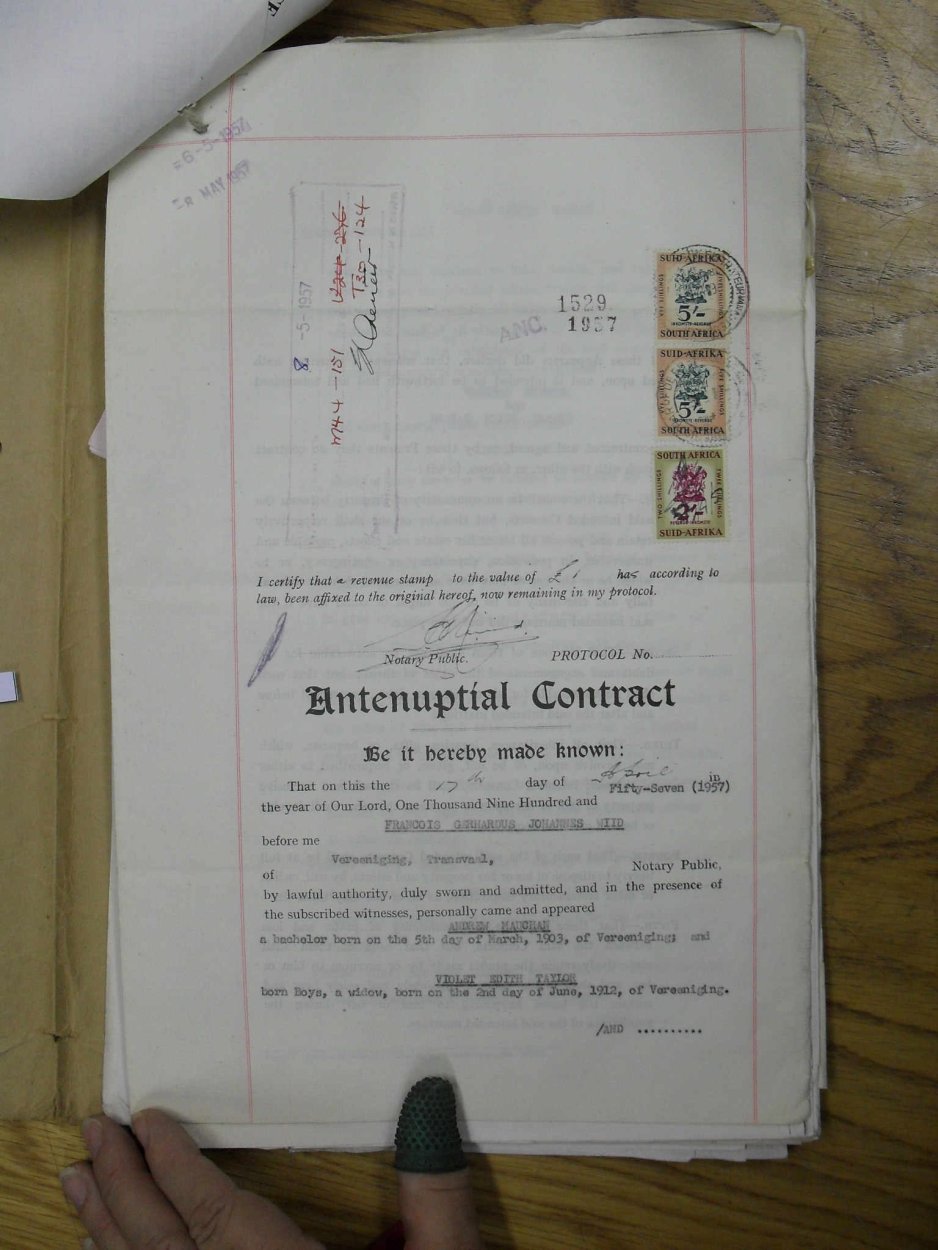 = 6-5-1957
MAY 1957
8 -5-1957
M44 -151
T30 -124
ANC.
1529
1957
SUID-AFRIKA
VYF SHILLINGS
FIVE SHILLINGS
5/-
INKOMSTE-REVENUE
SOUTH AFRICA
SUID-AFRIKA
VYF SHILLINGS
FIVE SHILLINGS
5/-
INKOMSTE-REVENUE
SOUTH AFRICA
SOUTH AFRICA
TWO SHILLINGS
TWEE SHILLINGS
2/-
REVENUE-INKOMSTE
SUID-AFRIKA
I certify that a revenue stamp to the value of £1 has according to
law, been affixed to the original hereof, now remaining in my protocol.
Notary Public.
PROTOCOL No.
Antenuptial Contract
Be it hereby made known:
That on this the 17th day of April in
the year of Our Lord, One Thousand Nine Hundred and Fifty-Seven (1957)
FRANCOIS GERHARDUS JOHANNES WIID
before me
Vereeniging, Transvaal,
of Notary Public,
by lawful authority, duly sworn and admitted, and in the presence of
the subscribed witnesses, personally came and appeared
ANDREW MAUGHAN
a bachelor born on the 5th day of March, 1903, of Vereeniging; and
VIOLET EDITH TAYLOR
born Boys, a widow, born on the 2nd day of June, 1912, of Vereeniging.
/AND ..........